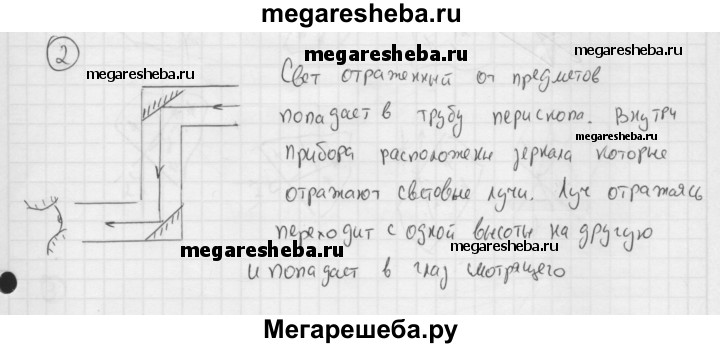 megaresheba.ru
2
megaresheba.ru
megaresheba.ru
megaresheba.ru
Свет отраженный от предметов
попадает в трубу перископа. Внутри
megaresheba.ru
прибора расположены зеркала которые
отражают световые лучи. Луч отражаясь
переходит с одной высоты на другую
megaresheba.ru
megaresheba.ru
и попадает в глаз смотрящего
Мегарешеба.ру